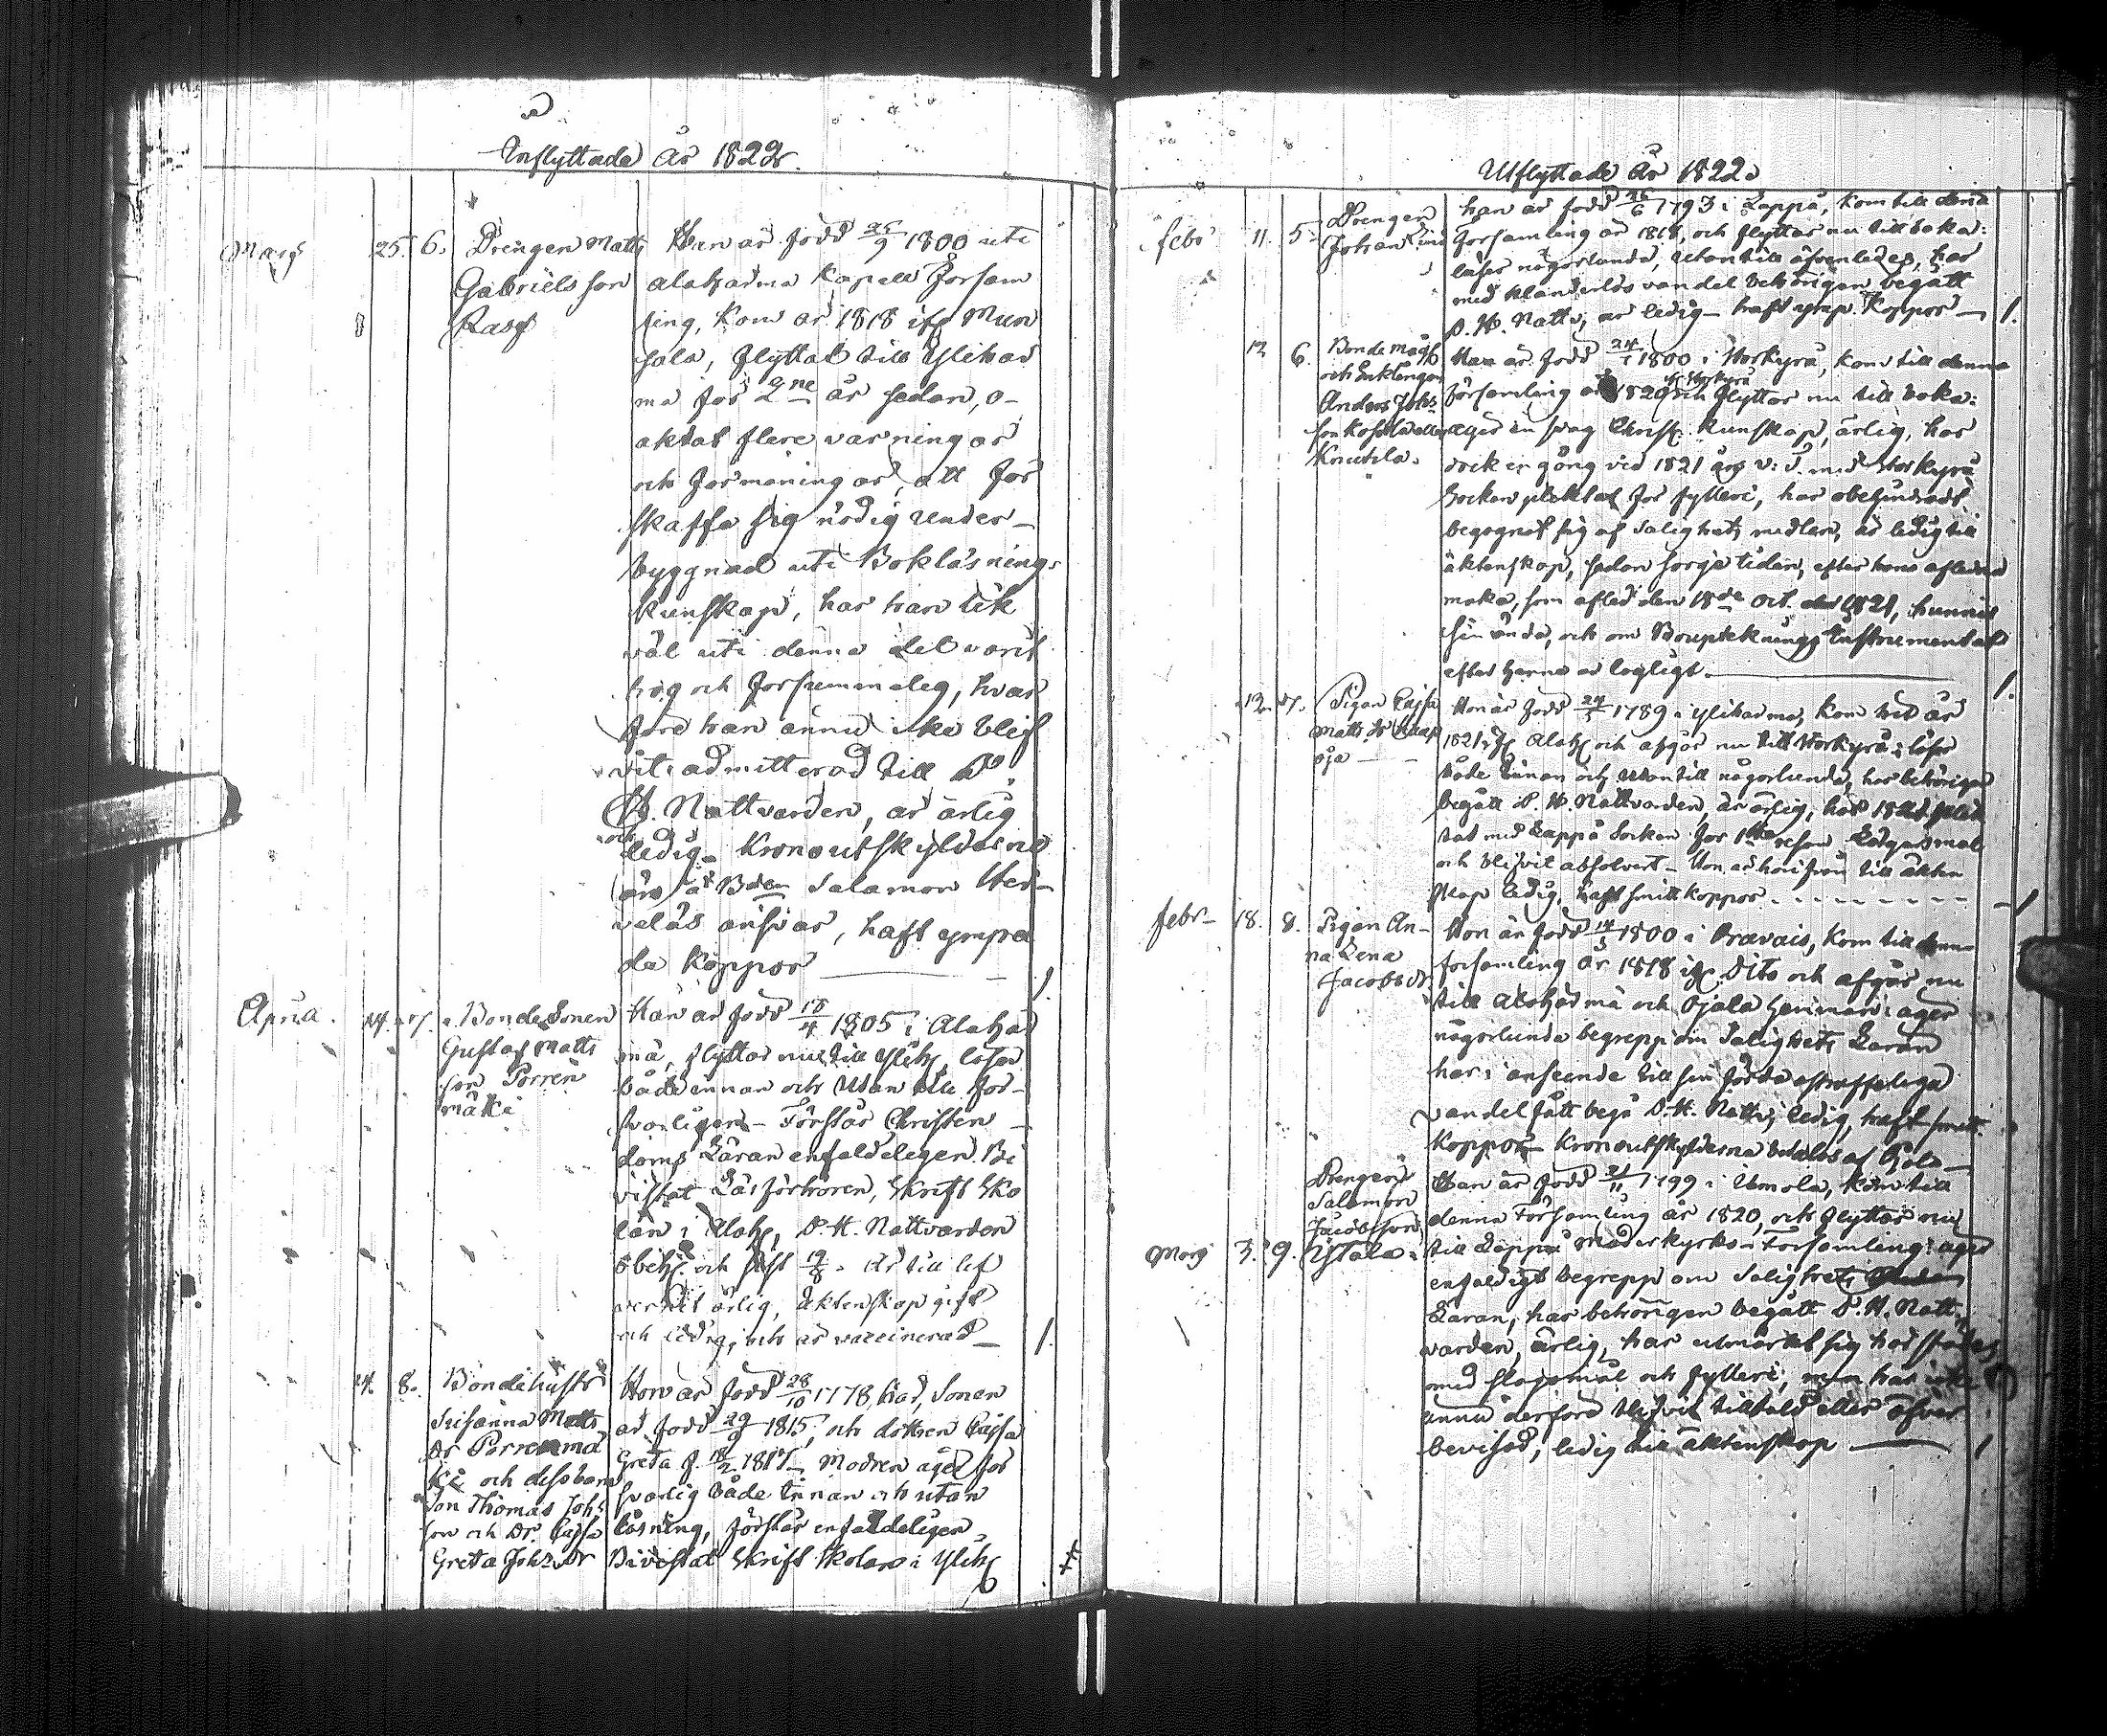 Inflyttade År 1822.
Mars 25. 6. Drengen Matts Gabriels son Rasf
Han är född 25/9 1800 uti
alahärma Kapell Församl
ling, Kom år 1818 ifr Mun
sala, flyttat till Ylihär
ma för 2ne år sedan, o-
aktat flere varningar
och förmaningar, att för
skaffa sig nödig under-
byggnad uti Bokläsnings
kunskap, har han lik
väl uti denna del varit
trög och försummelig, hvar
före han ännu icke blif
vit admitterad till D.
H. Nattvarden, är ärlig
och ledig - Kronoutskylderne
Salamon
ansvar, haft ympa
de koppor
April. 24. 7. Bonde Sonen
Gustaf Matts
son Porren
mäki
Han är född 18/4 1805 i Alahär
mä, flyttar nu till Ylih. läser
både innan och utan till för-
svarligen - Förstår Christen
doms Läran enfaldeligen. Bi
vistat Läsförhören, Skrift Sko
lan i Alah, D. H. Nattvarden
obeh. och sist Är till lef
vernet ärlig, äktenskap gift
och ledig, och är vaccinerad - 1.
24. 8. Bondehustr
Susanna Matts
Dr Porrenmä
ki och dess barn
Son Thomas Johs
son och Dr. Cajsa
Greta Johs Dr
Hon är född 28/10 1778 härs, Sonen
är född 29/9 1815, och dottren Cajsa
Greta f. 1817 - Modren äger för
svarlig både innan och utan
läsning, förstår enfaldeligen
Bivistat Skrift Skolan i Ylih
Utflyttade År 1822.
Febr 11. 5. Drengen
Johan
han är född 26/6 1793 i Lappå, kom till denna
Församling år 1818, och flyttar nu tillbaka:
läser någorlunda, utantill äfvenledes, har
med klanderlös vandel behörigen begått
D. H. Nattv, är ledig - haft ymp. Koppor - 1.
12 6. Bonde Mågh
och Enklingen
Anders Johs
son Koskela eller
Knutila.
Han är född 24/1 1800 i Storkyrå, kom till denna
församling år 1820 ifr Storkyrå och flyttar nu tillbaka:
äger en svag Christ. Kunskap, ärlig, har
dock en gång vid 1821 års v. T. med Storkyrå
Socken pliktat för fylleri, har obehindradt
begagnat sig af Salighets medlen, är ledig till
äktenskap, sedan sorge tiden, efter hans aflidna
maka, som afled den 18de Oct. 1821, hunnit
sin ända, och om Boupteknings Instrumentet
efter henne är lagligt. 1.
12. 7. Pigan Cajsa
Matts Dr Haap
oja
Hon är född 24/5 1789 i Ylihärmä, Kom hit år
1821 ifr Alah och afgår nu till Storkyrå: läser
både innan och utantill någorlunda, har behörigen
begått D. H. Nattvarden, är ärlig, har 1821 plik
tat med Lappå Socken för 1sta resan Lägersmål
och blifvit absolvert - Hon är härifrån till äkten
skap ledig, haft smittkoppor - - - 1
Febr - 18. 8. Pigan An-
na Lena
Jacobs dr.
Hon är född 14/3 1800 i Oravais, Kom till denna
församling År 1818 ifr. Dito och afgår nu
till Alahärmä och Ojala hemman: äger
någorlunda begrepp om Salighets Läran
har i anseende till sin förda ostraffeliga
vandel fått begå D. H. Nattv, ledig, haft smitt
Koppor - Kronoutskylderna betalas af Ojala -
Mars 3. 9. Drengen
Salamon
Jacobsson
Ystala.
Han är född 21/11 1799 i Ilmola, Kom till
denna Församling år 1820, och flyttar nu
till Lappå Moderkyrko Församling: äger
enfaldigt begrepp om Salighets
Läran, har behörigen begått D. H. Natt
varden, ärlig, har utmärkt sig
med slagsmål och fylleri, men har icke
ännu derföre blifvit tilltald eller öfver
bevisad, ledig till äktenskap - 1